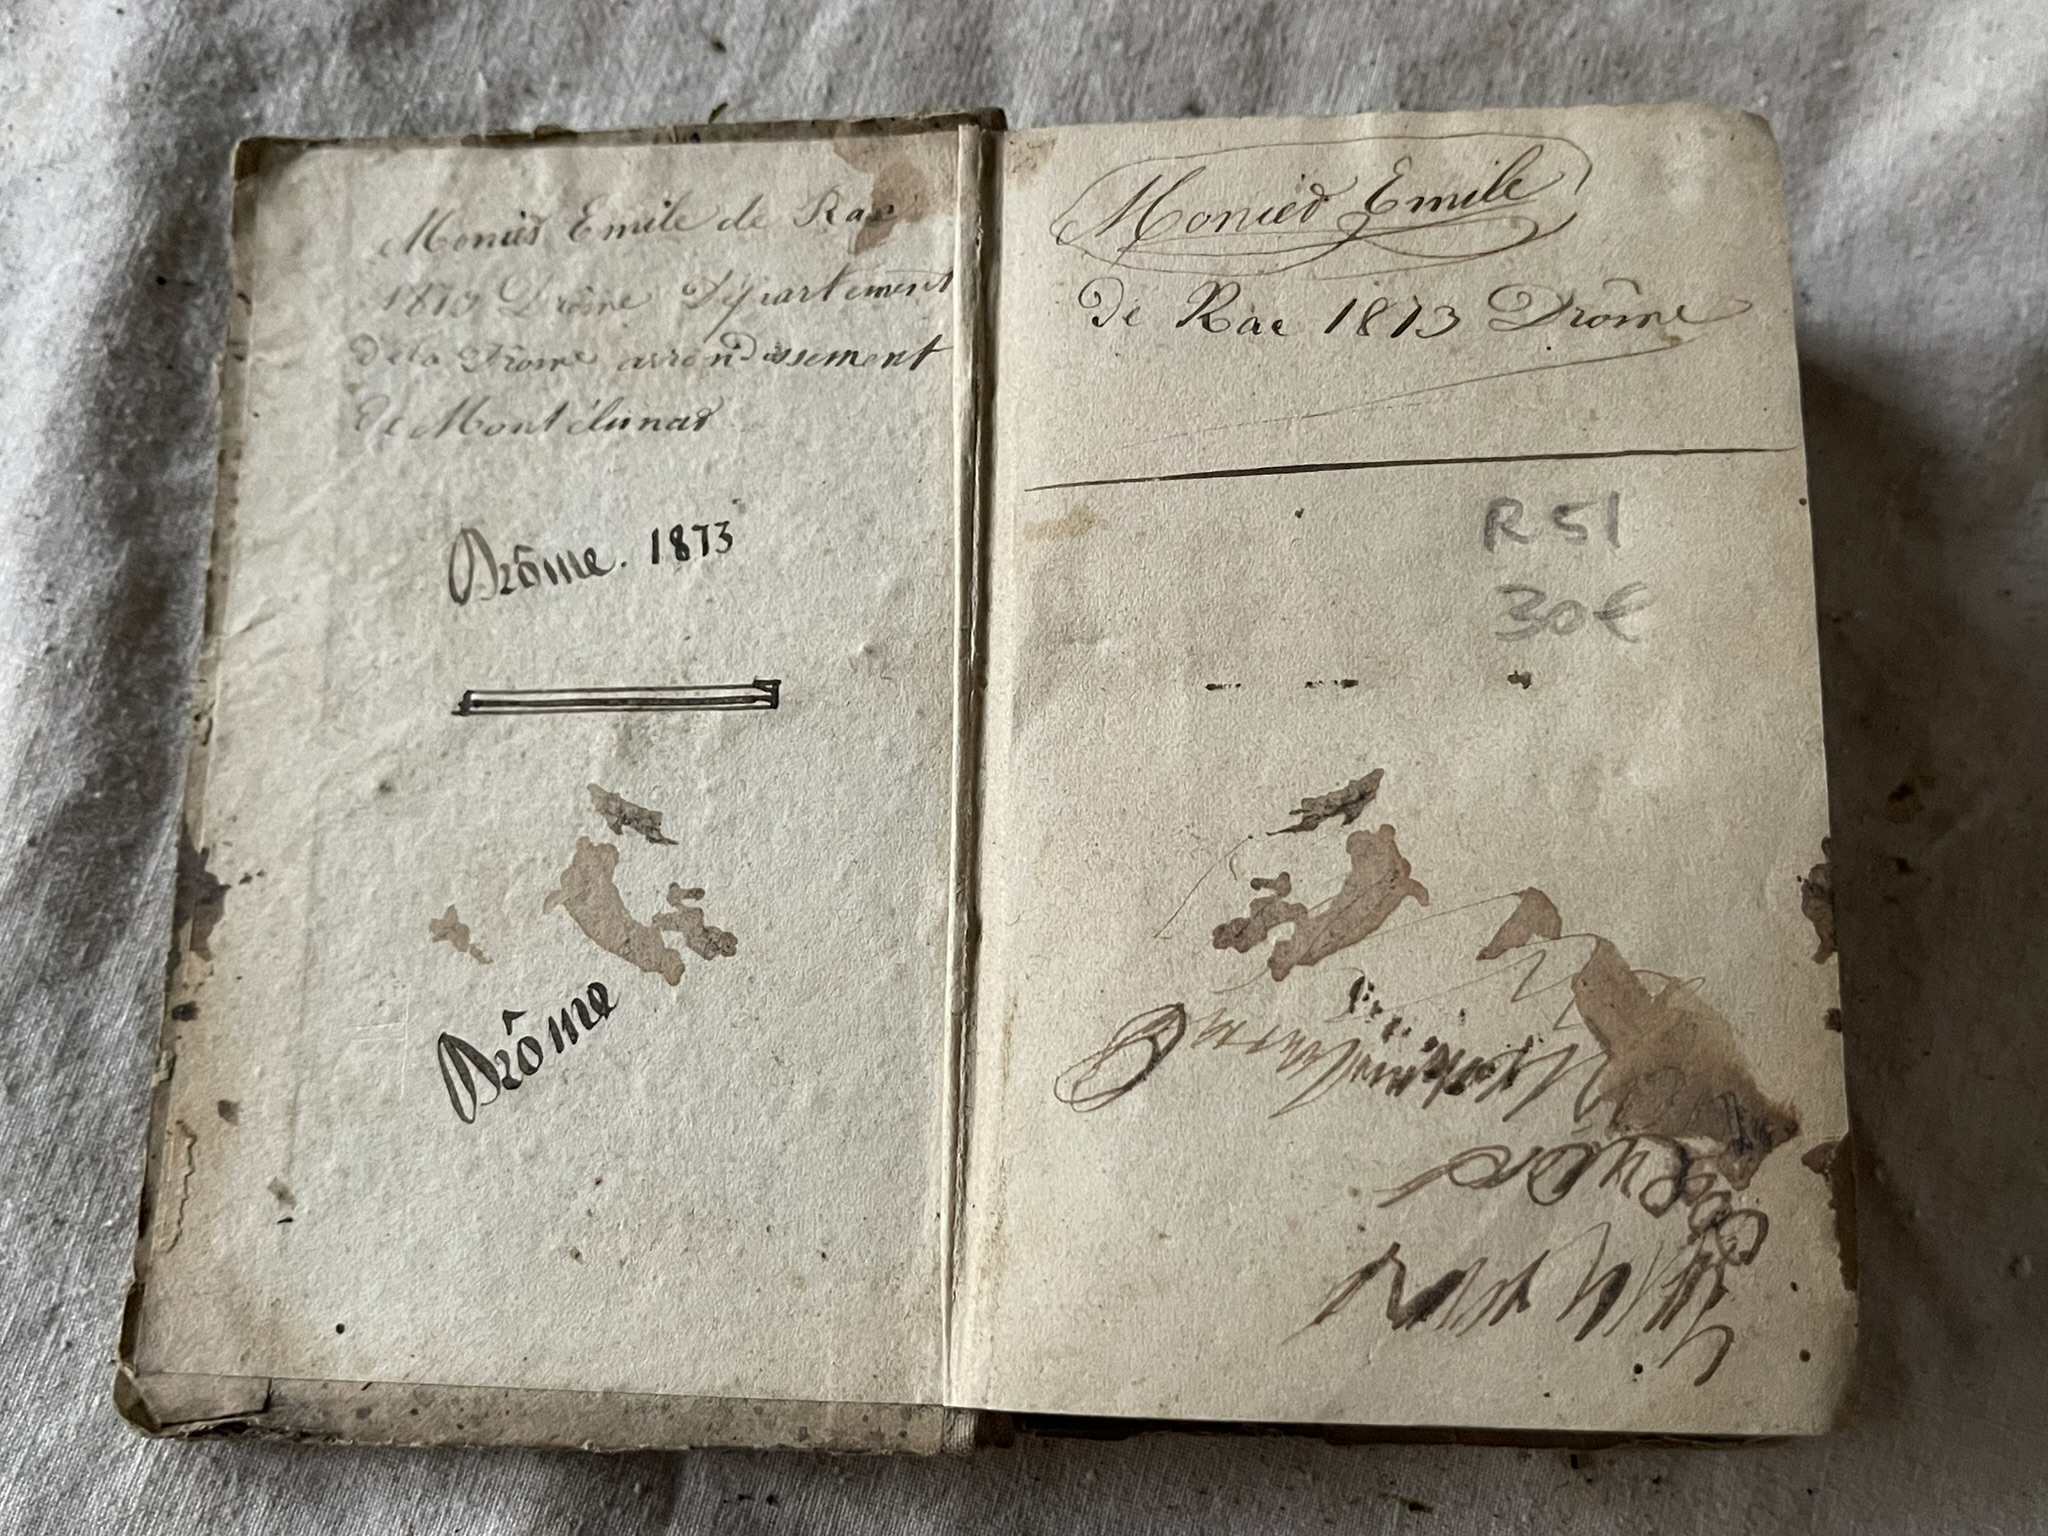 Monier Emile de Rac
1873 Drôme Département
de la Drôme arrondissement
de Montélimar
Drôme. 1873
Drôme
Monier Emile
de Rac 1873 Drôme
R 51
30€